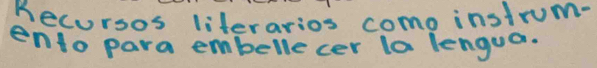 Recursos literarios como instrum-
ento para embellecer la lengua.